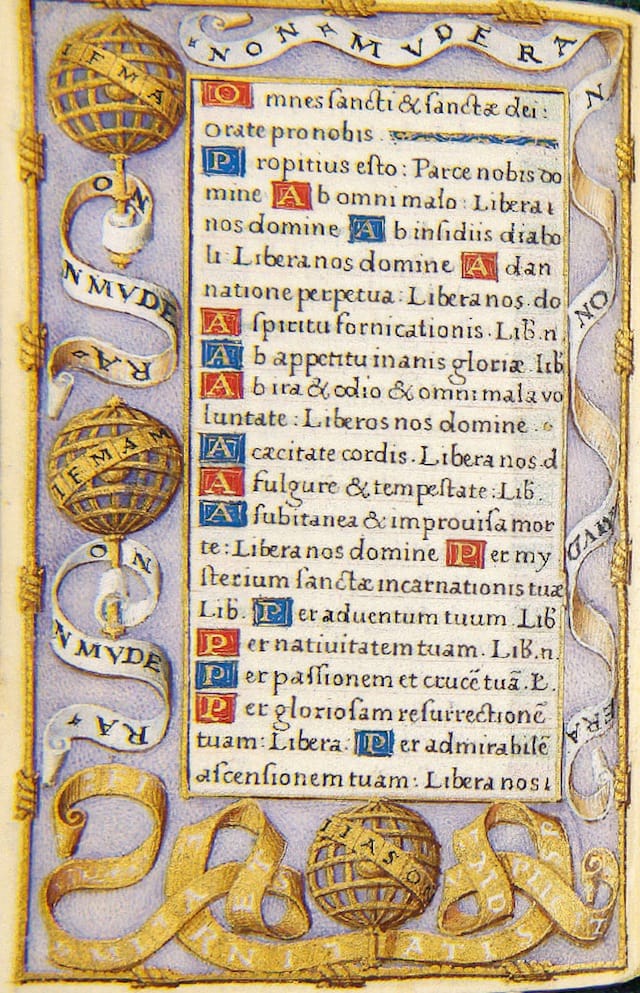 NON MVDERA
Omnes sancti & sanctæ dei:
orate pro nobis.
Propitius esto: Parce nobis do
mine Ab omni malo: Libera
nos domine Ab insidiis diabo
li: Libera nos domine A dan
natione perpetua: Libera nos. do
A spiritu fornicationis. Lib. n
Ab appetitu inanis gloriæ. Lib
Ab ira & odio & omni mala vo
luntate: Liberos nos domine.
A cæcitate cordis. Libera nos. d
A fulgure & tempestate: Lib.
A subitanea & improuisa mor
te: Libera nos domine Per my
sterium sanctæ incarnationis tuæ
Lib. Per aduentum tuum. Lib
Per natiuitatem tuam. Lib. n.
Per passionem et crucē tuā. L.
Per gloriosam resurrectionē
tuam: Libera. Per admirabilē
ascensionem tuam: Libera nos
IEMA
ON
NMVDE
RA
IEMAM
ON
NMVDE
RA
N
ON
MVD
ERA